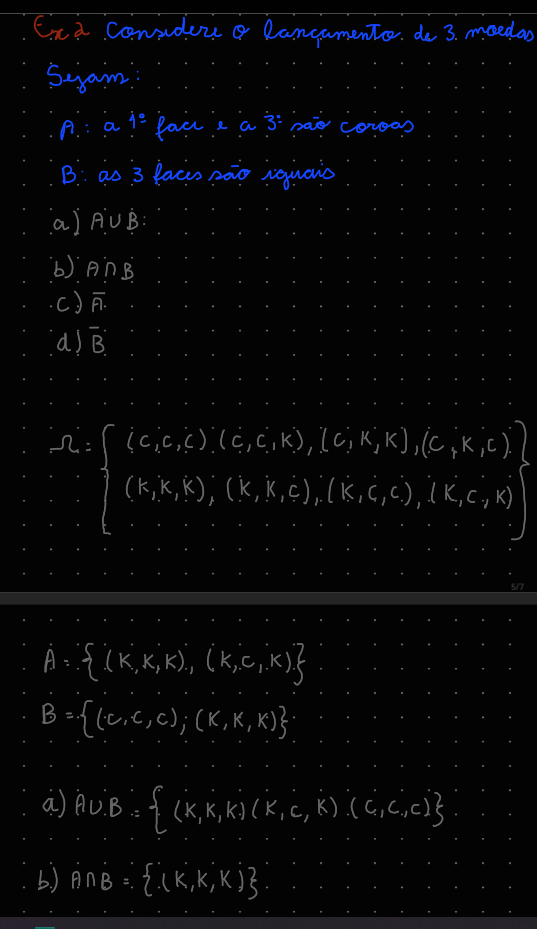 Ex 2 Considere o lançamento de 3 moedas
Sejam:
A: a 1ª face e a 3ª são coroas
B: as 3 faces são iguais
a) A∪B:
b) A∩B
c) Ā
d) B̄
Ω = { (C,C,C) (C,C,K), (C,K,K), (C,K,C)
(K,K,K), (K,K,C), (K,C,C), (K,C,K) }
5/7
A = { (K,K,K), (K,C,K) }
B = { (C,C,C); (K,K,K) }
a) A∪B = { (K,K,K) (K,C,K) (C,C,C) }
b) A∩B = { (K,K,K) }